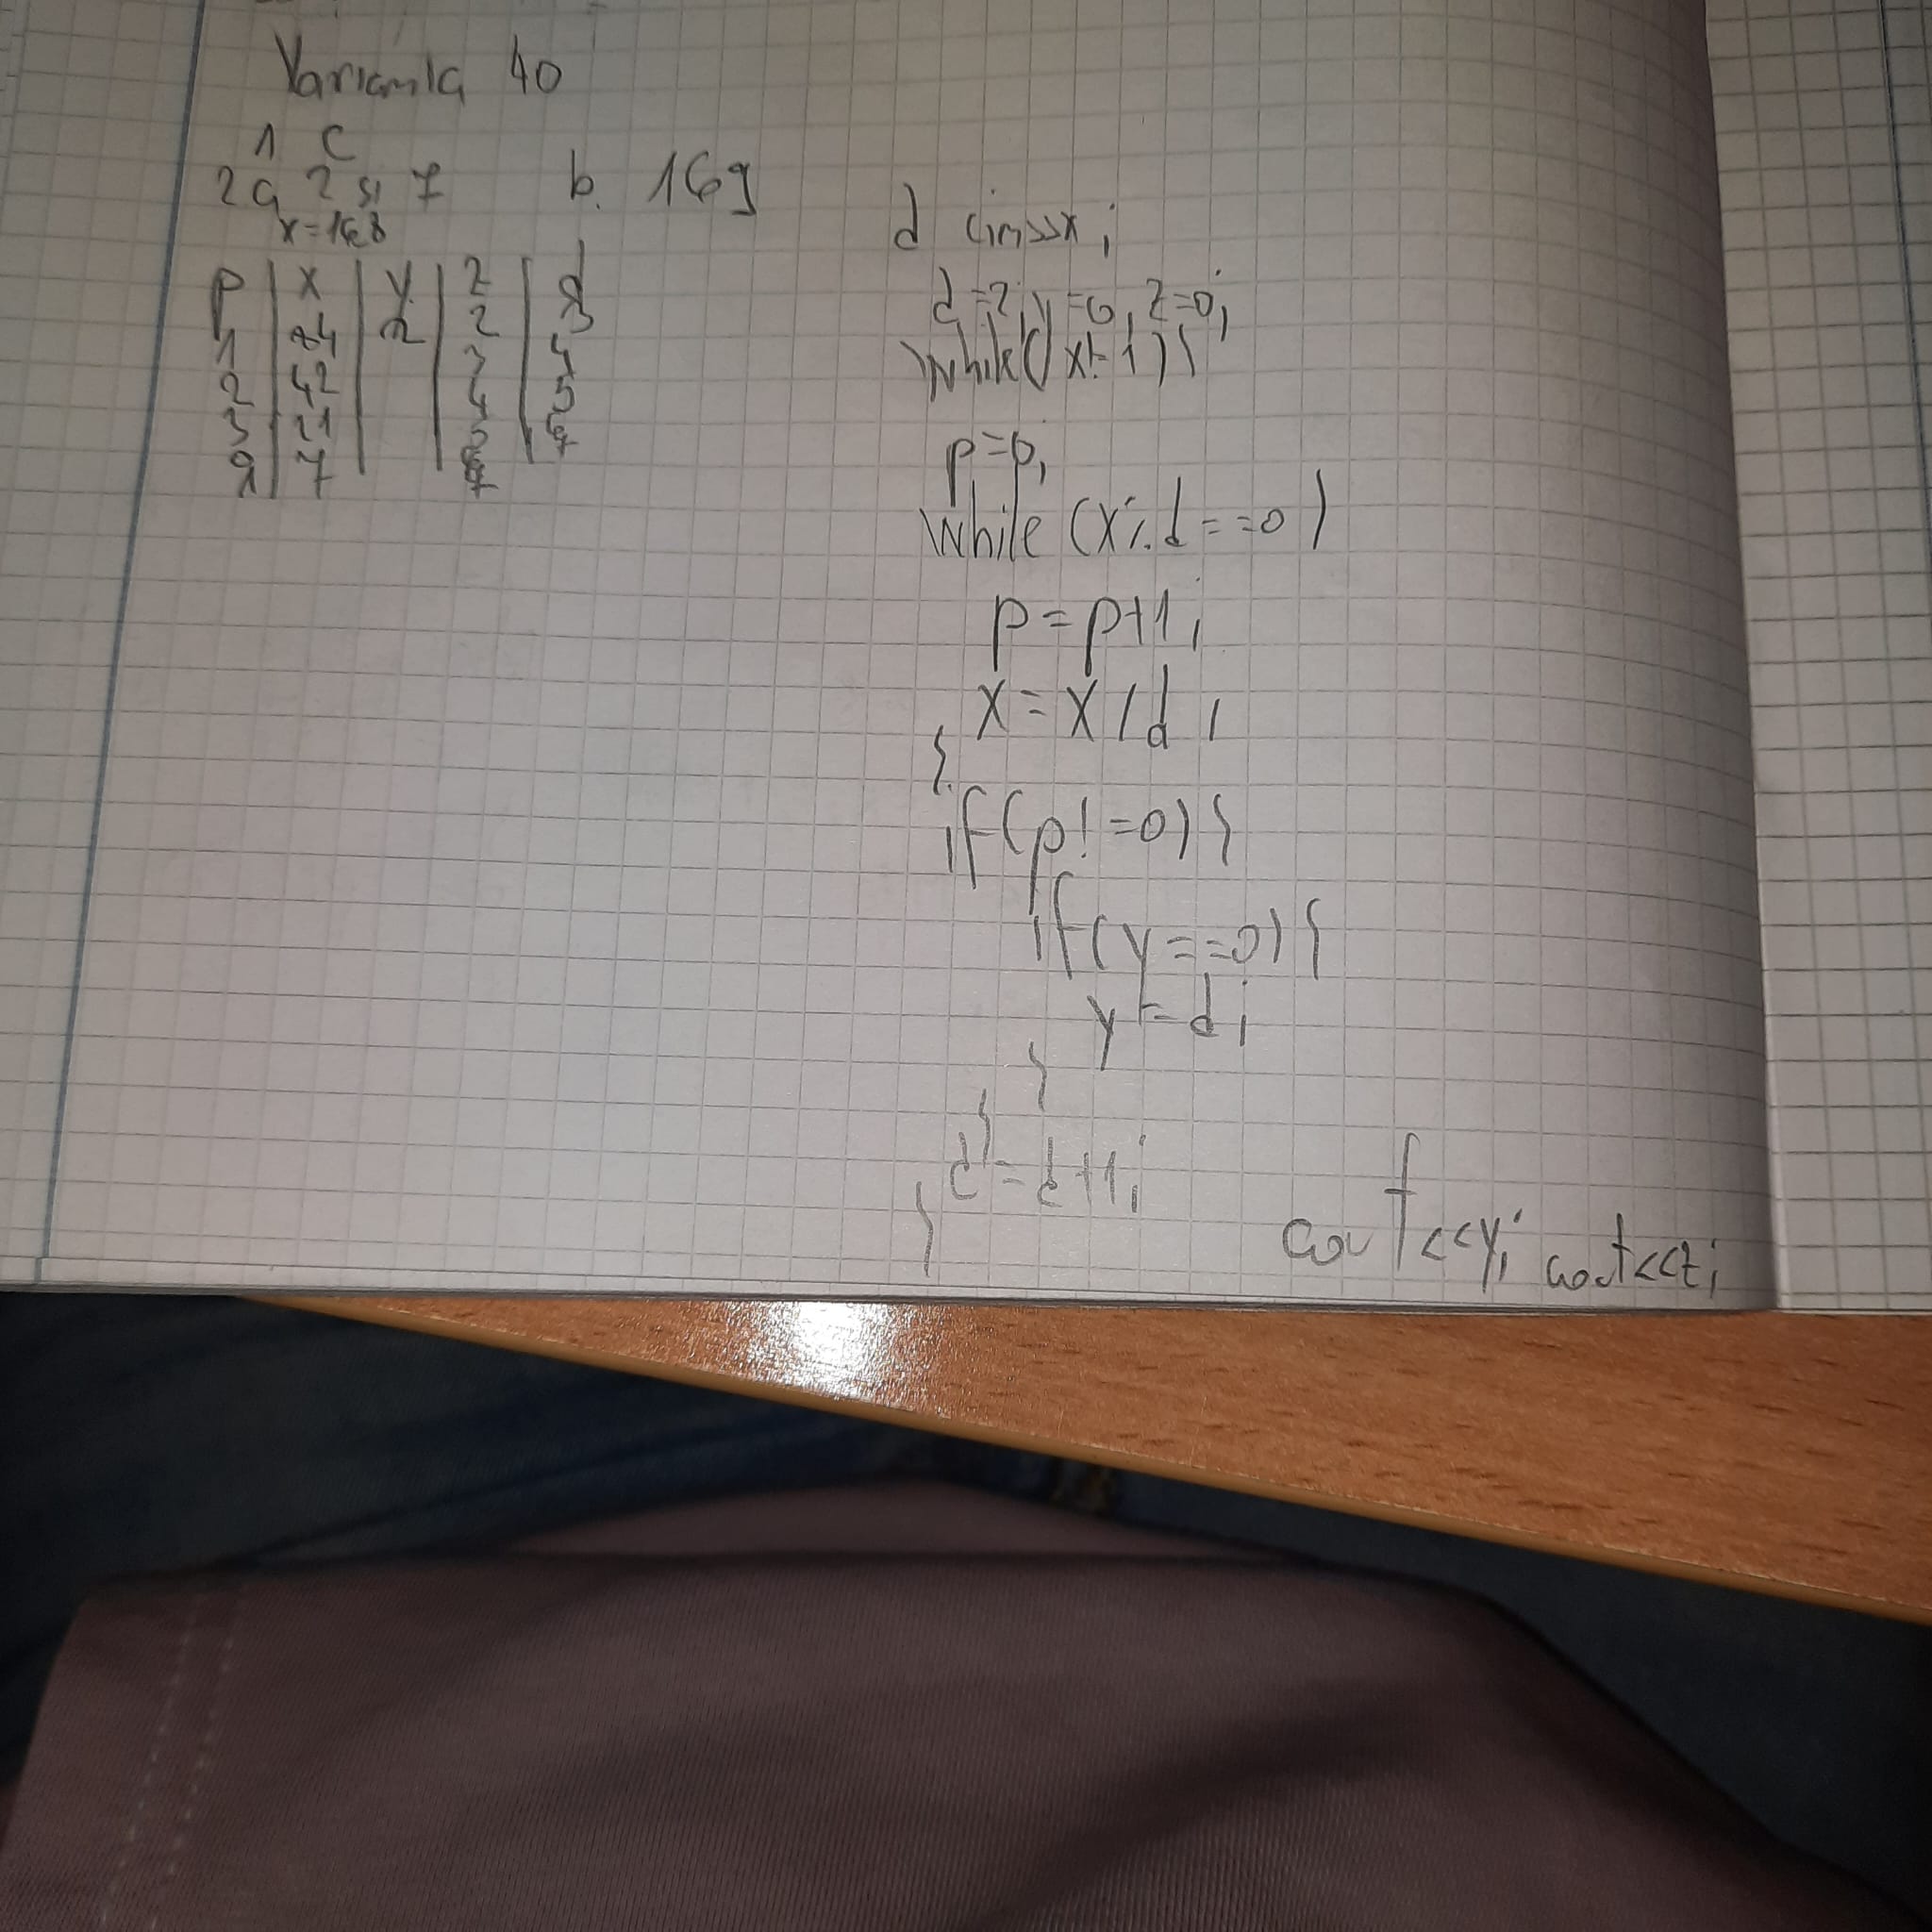 Varianta 40
1 C
2a 2 si 7 b. 169
x=168
p | x | y | z | d
1 | 84 | 2 | 2 | 3
2 | 42 | 3 | 4
3 | 21 | 4 | 5
7 | 5
7
d cin>>x;
d=2, y=0, z=0;
while(x!=1){
p=0;
while (x%d==0)
p=p+1;
x=x/d;
}
if(p!=0){
if(y==0){
y=d;
}
}
d=d+1;
}
cout<<y; cout<<z;